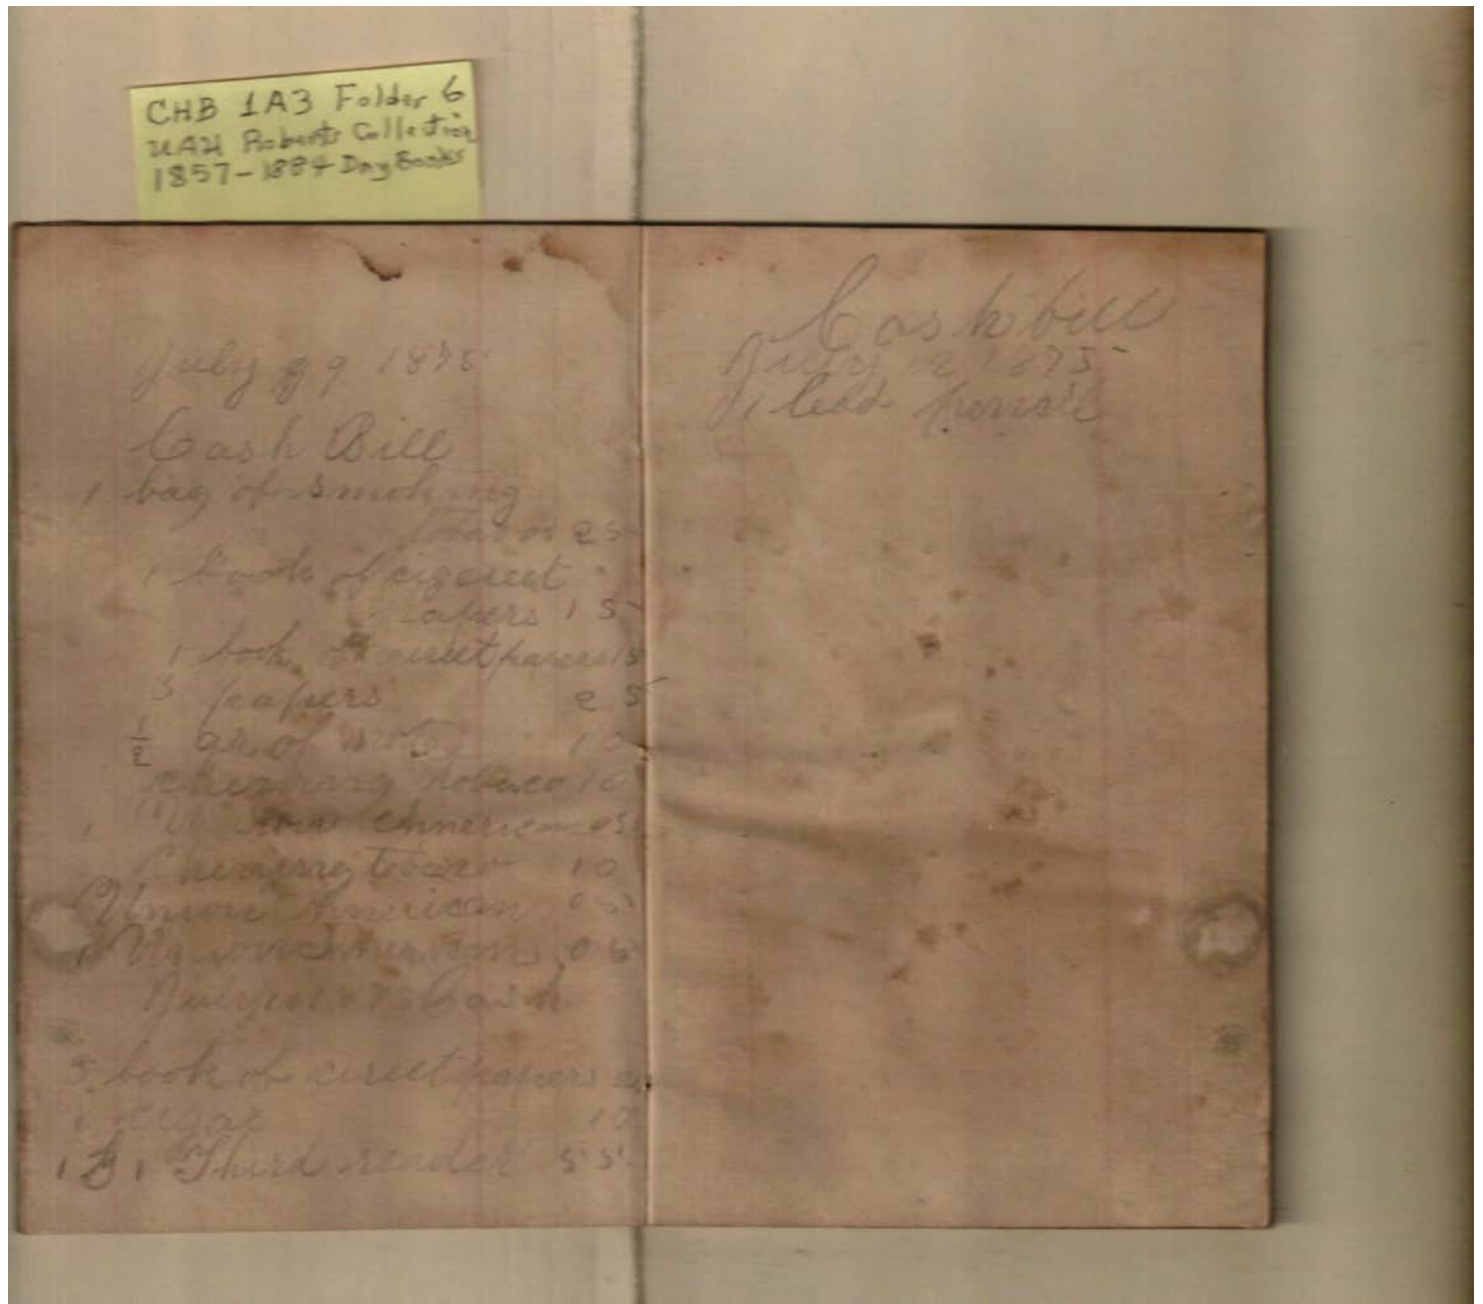 CHB 1A3 Folder 6
UAH Roberts Collection
1857-1884 Day Books
July 29 1875
Cash Bill
1 bag of smoking
25
1 book of cigereet
papers 15
1 book of papers 15
3 papers 25
1/2 of 10
chewing tobaco 10
1 American 05
Chewing 10
Union American 05
1 Union American 05
July 1875 Cash
3 book of cireet papers
1 cigar 10
1 1 Third reader 55
Cash bill
July 1875
1 lead pencil